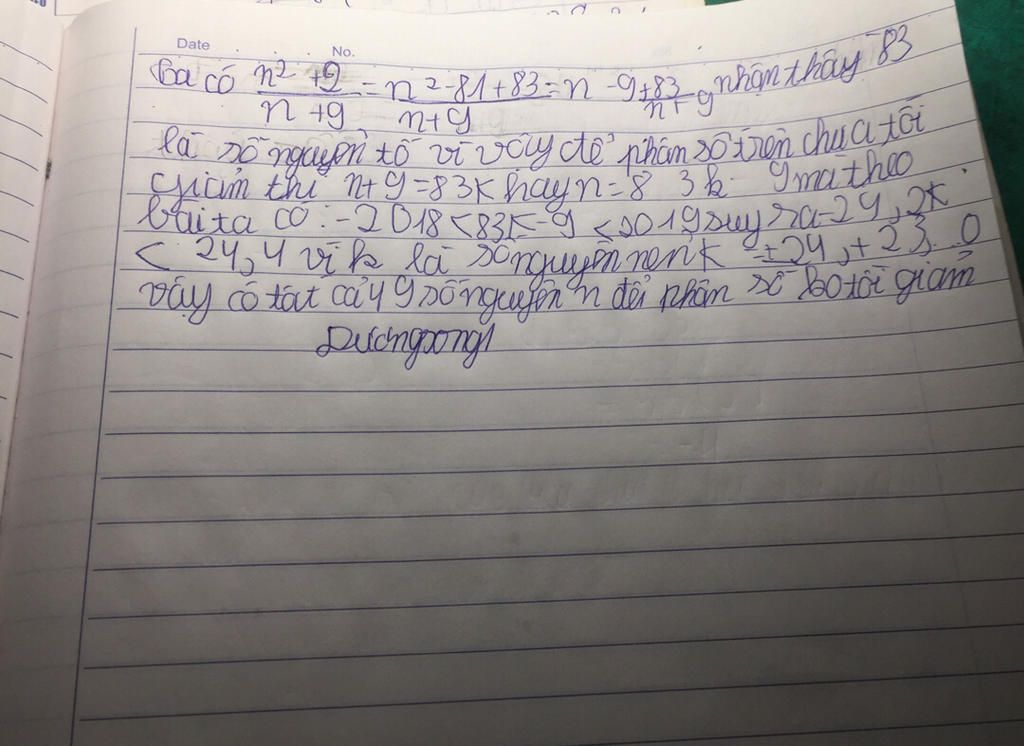 Date No.
Ta có n² + 2 / n + 9 = n² - 81 + 83 / n + 9 = n - 9 + 83 / n + 9 nhận thấy 83
là số nguyên tố vì vậy để phân số trên chưa tối
giản thì n + 9 = 83k hay n = 8 3k - 9 mà theo
bài ta có : - 2018 < 83k - 9 < 2019 suy ra -24,2k
< 24,4 vì k là số nguyên nên k = ± 24, ± 23.. 0
vậy có tất cả 49 số nguyên n để phân số ko tối giản